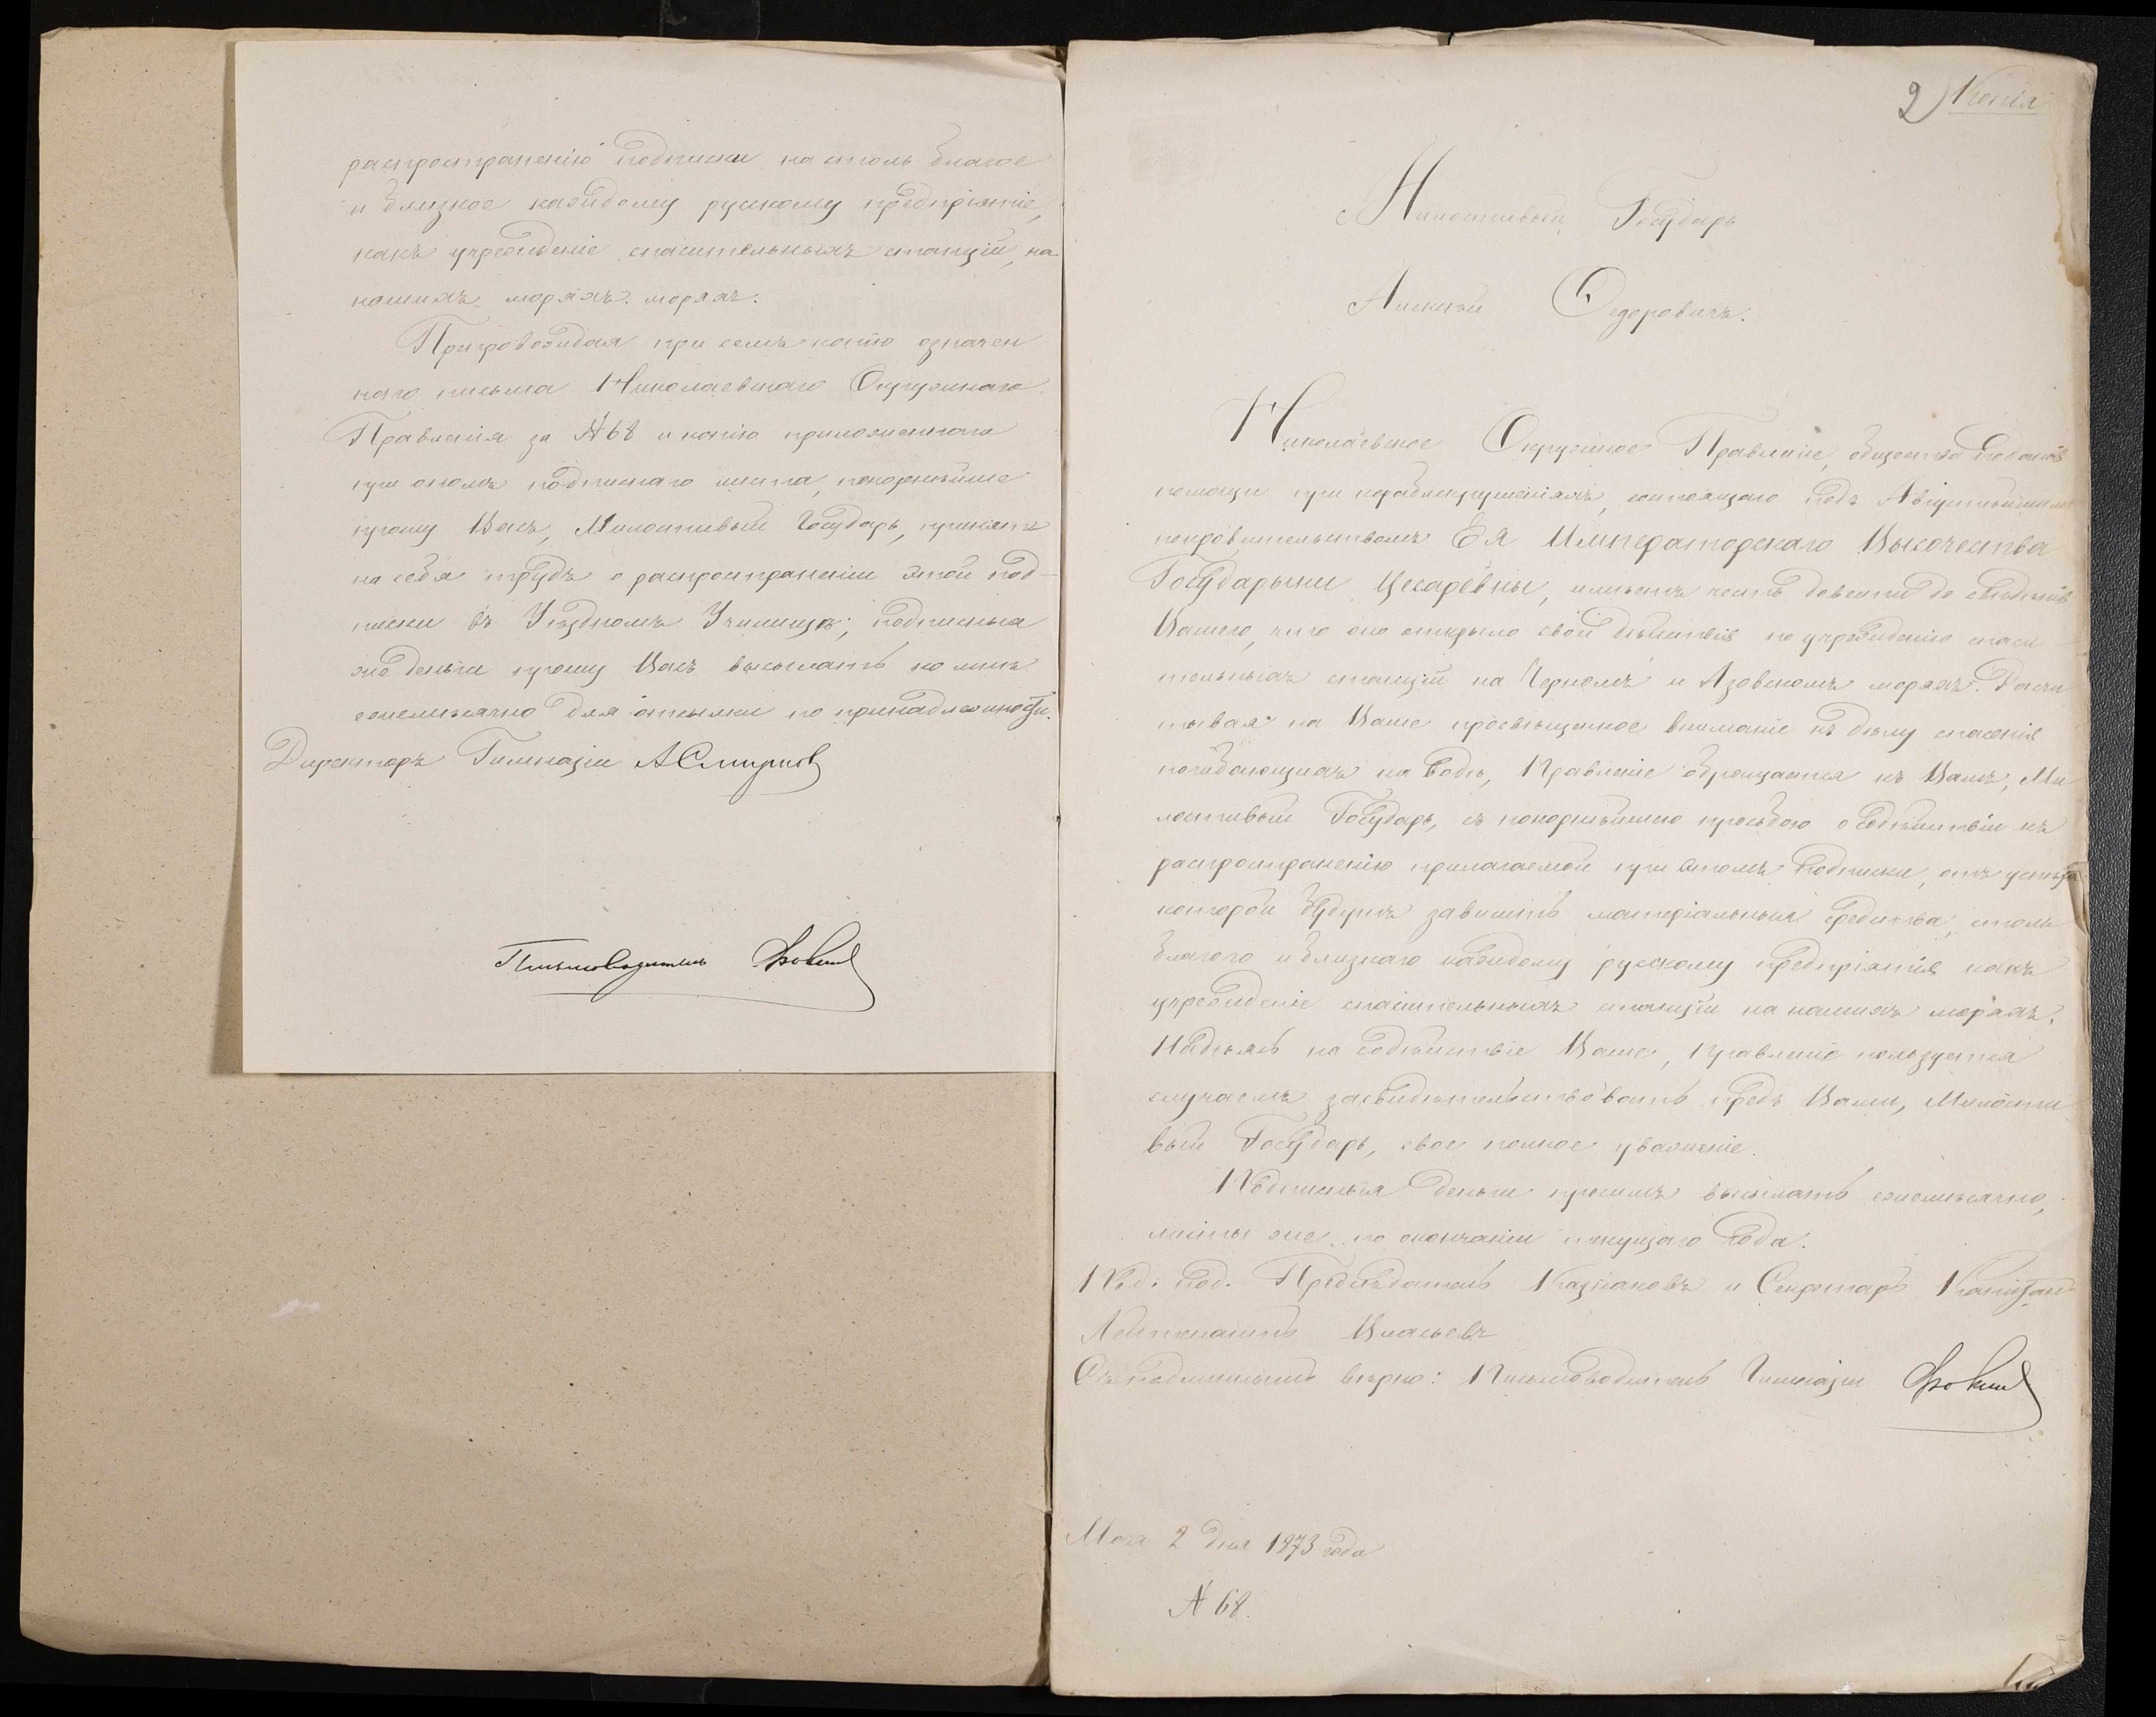 распространенію подписки на столь благое
и близкое каждому русскому предпріятіе,
какъ учрежденіе спасительныхъ станцій, на
нашихъ моряхъ. моряхъ.
Препровождая при семъ копію означен
наго письма Николаевскаго Окружнаго
Правленія за № 68 и копію приложеннаго
при ономъ подписнаго листа, покорнѣйше
прошу Васъ, Милостивый Государь, принять
на себя трудъ о распространеніи этой под-
писки въ Уѣздномъ Училищѣ; подписныя
же деньги прошу Васъ высылать ко мнѣ
ежемѣсячно для отсылки по принадлежности.
Директоръ Гимназіи А Смирнов
Письмоводитель
2) Копія
Милостивый Государь
Алексѣй Федоровичъ.
Николаевское Окружное Правленіе, общества поданія
помощи при кораблекрушеніяхъ, состоящаго подъ Августѣйшимъ
покровительствомъ Ея Императорскаго Высочества
Государыни Цесаревны, имѣетъ честь довести до свѣдѣнія
Вашего, что оно открыло свои дѣйствія по учрежденію спаси
тельныхъ станцій на Черномъ и Азовскомъ моряхъ. Расчи
тывая на Ваше просвѣщенное вниманіе къ дѣлу спасенія
погибающихъ на водѣ, Правленіе обращается къ Вамъ, Ми
лостивый Государь, съ покорнѣйшею просьбою о содѣйствіи къ
распространенію прилагаемой при этомъ подписки, отъ успѣха
которой будутъ зависѣть матеріальныя средства, столь
благого и близкаго каждому русскому предпріятія какъ
учрежденіе спасительныхъ станцій на нашихъ моряхъ.
Надѣясь на содѣйствіе Ваше, Правленіе пользуется
случаемъ засвидѣтельствовать предъ Вами, Милости
вый Государь, свое полное уваженіе.
Подписныя деньги просимъ высылать ежемѣсячно,
листы же по окончаніи текущаго года.
Под. под. Предсѣдатель Казнаковъ и Секретарь Капитан
Лейтенантъ Власьевъ
Съ подлиннымъ вѣрно: Письмоводитель Гимназіи
Мая 2 дня 1873 года
№ 68.